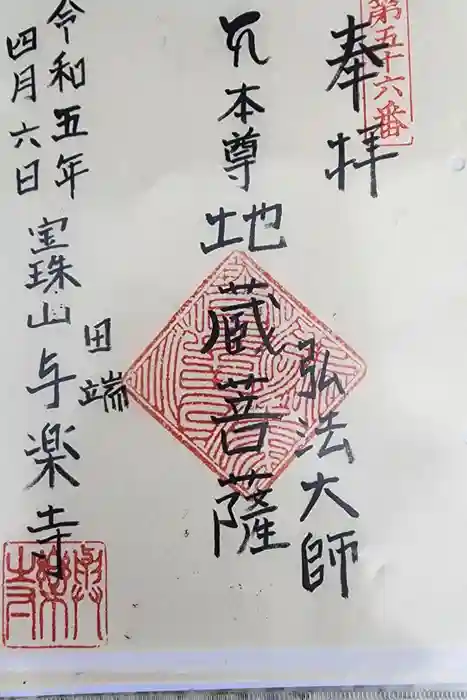 第五十六番
奉拝
弘法大師
本尊
地蔵菩薩
田端
宝珠山与楽寺
令和五年
四月六日
與樂寺